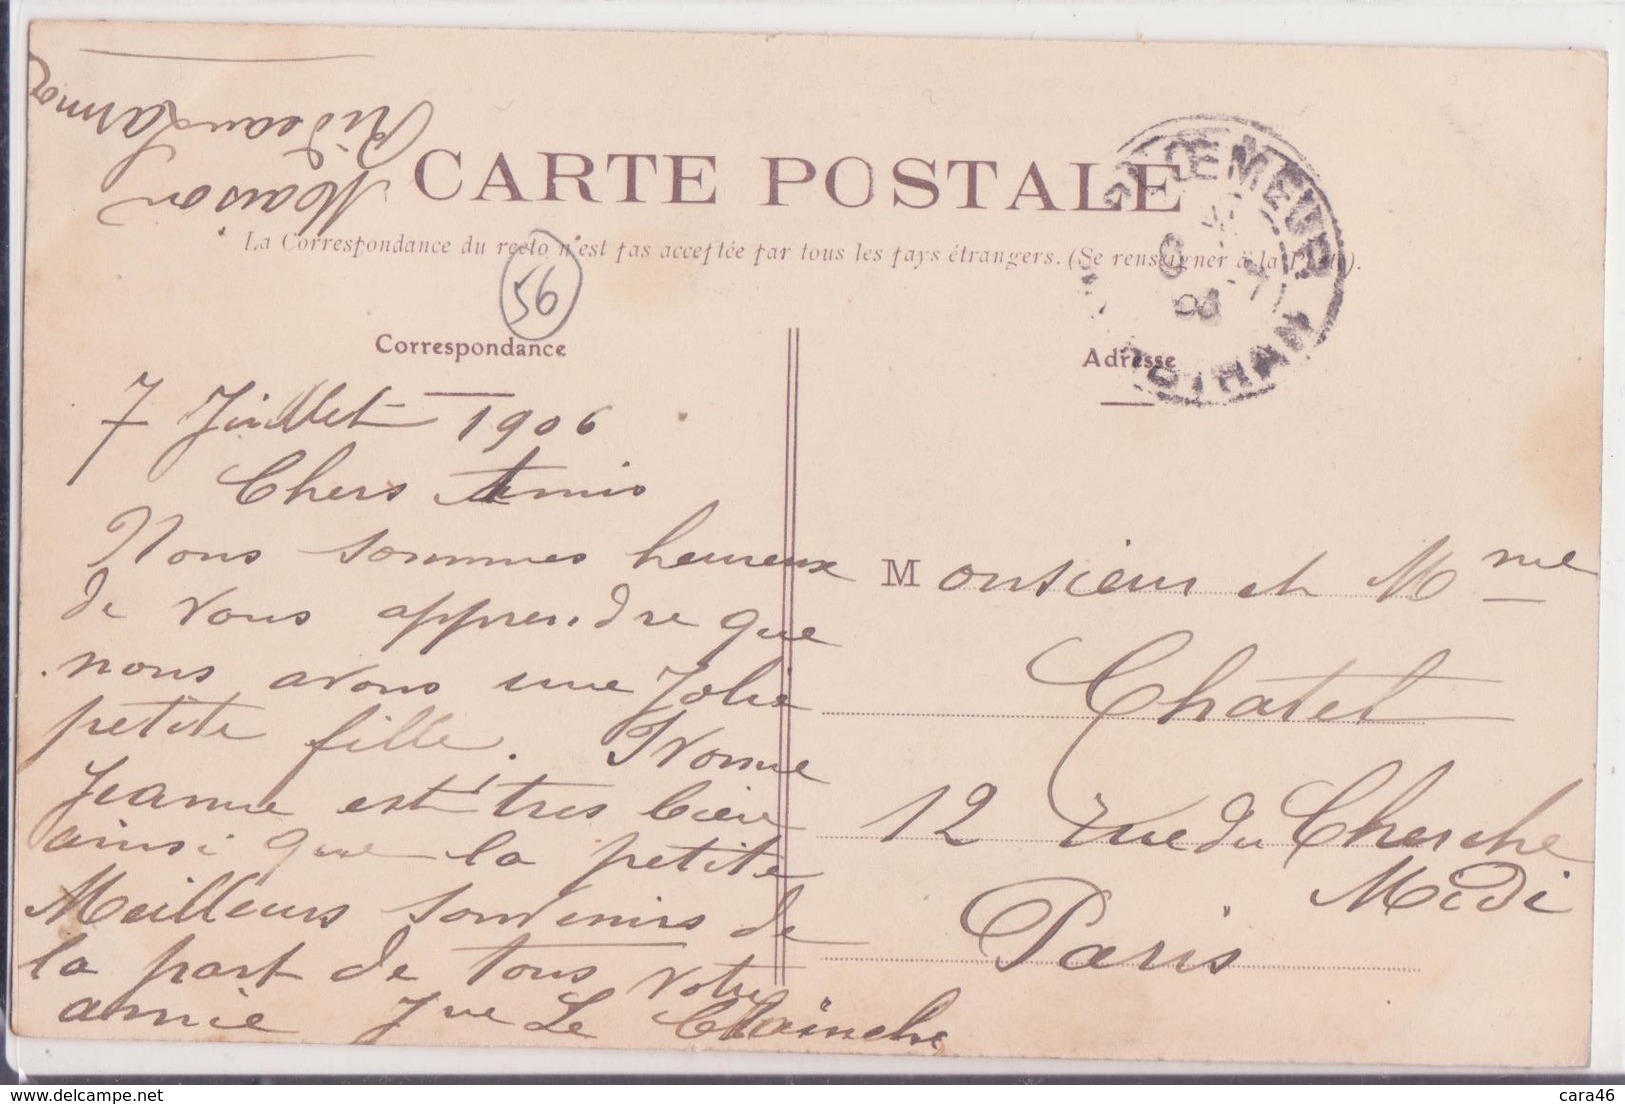 Maison
Rideau Larmor
CARTE POSTALE
La Correspondance du recto n'est pas acceptée par tous les pays étrangers. (Se renseigner à la Poste).
95
PLOEMEUR
MORBIHAN
06
Correspondance
7 Juillet 1906
Chers Amis
Nous sommes heureux
de vous apprendre que
nous avons une Jolie
petite fille. Yvonne
Jeanne est très bien
ainsi que la petite
Meilleurs souvenirs de
la part de tous Votre
amie Jne Le
Adresse
Monsieur et Mme
Chatel
12 rue du Cherche
Midi
Paris
cara46